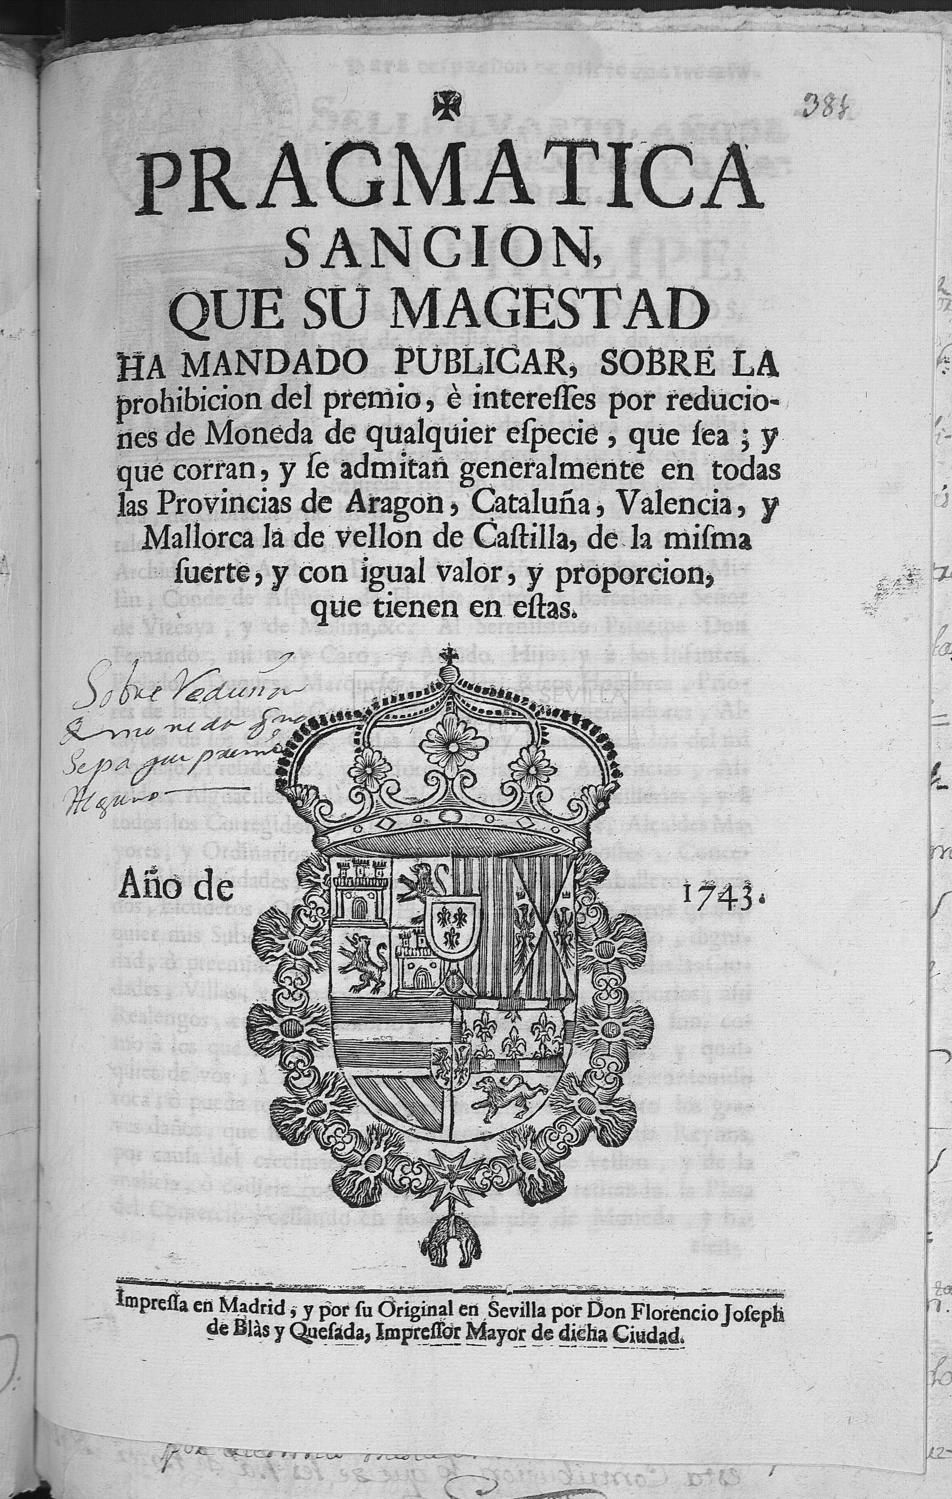 ✠
384
PRAGMATICA
SANCION,
QUE SU MAGESTAD
HA MANDADO PUBLICAR, SOBRE LA
prohibicion del premio, è intereſſes por reducio-
nes de Moneda de qualquier eſpecie, que ſea; y
que corran, y ſe admitan generalmente en todas
las Provincias de Aragon, Cataluña, Valencia, y
Mallorca la de vellon de Caſtilla, de la miſma
ſuerte, y con igual valor, y proporcion,
que tienen en eſtas.
Sobre
moneda
Alguno
Año de 1743.
Impreſſa en Madrid, y por ſu Original en Sevilla por Don Florencio Joſeph
de Blàs y Queſada, Impreſſor Mayor de dicha Ciudad.